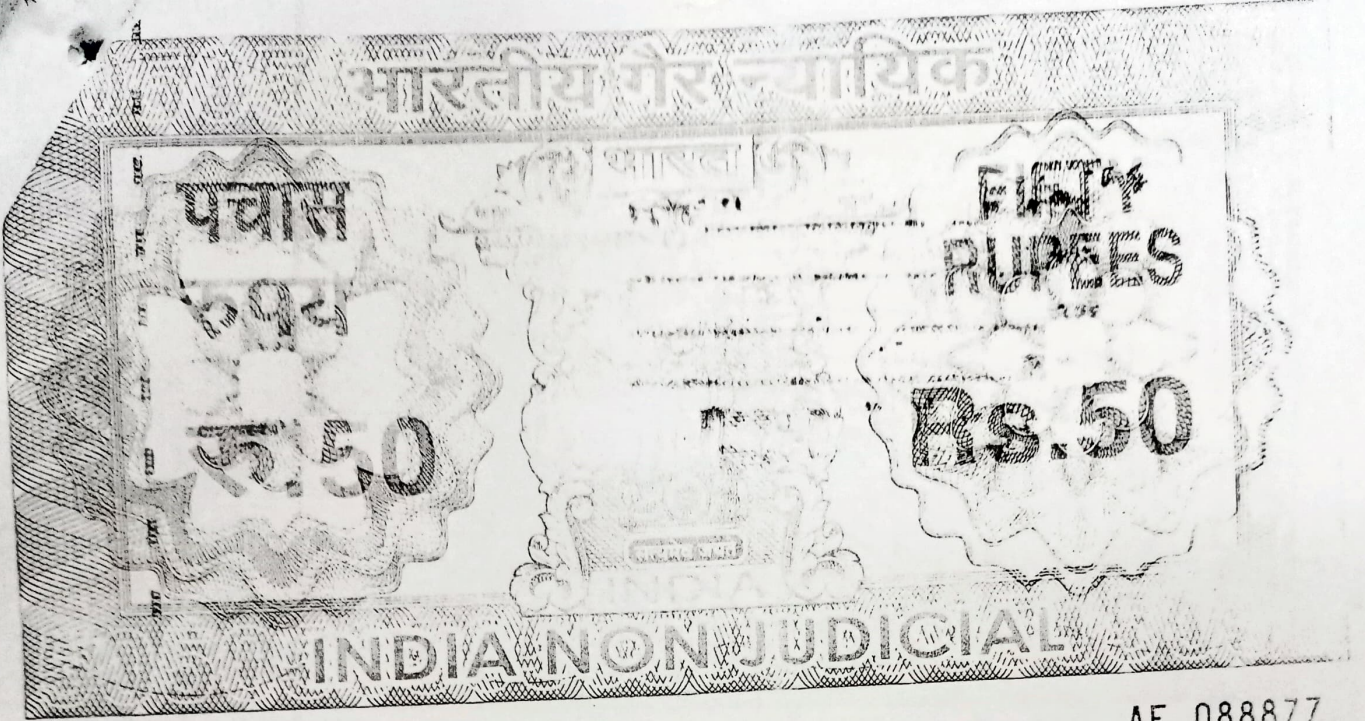 भारतीय गैर न्यायिक
भारत
पचास
रुपये
रू.50
FIFTY
RUPEES
Rs.50
सत्यमेव जयते
INDIA
INDIA NON JUDICIAL
AE 088877